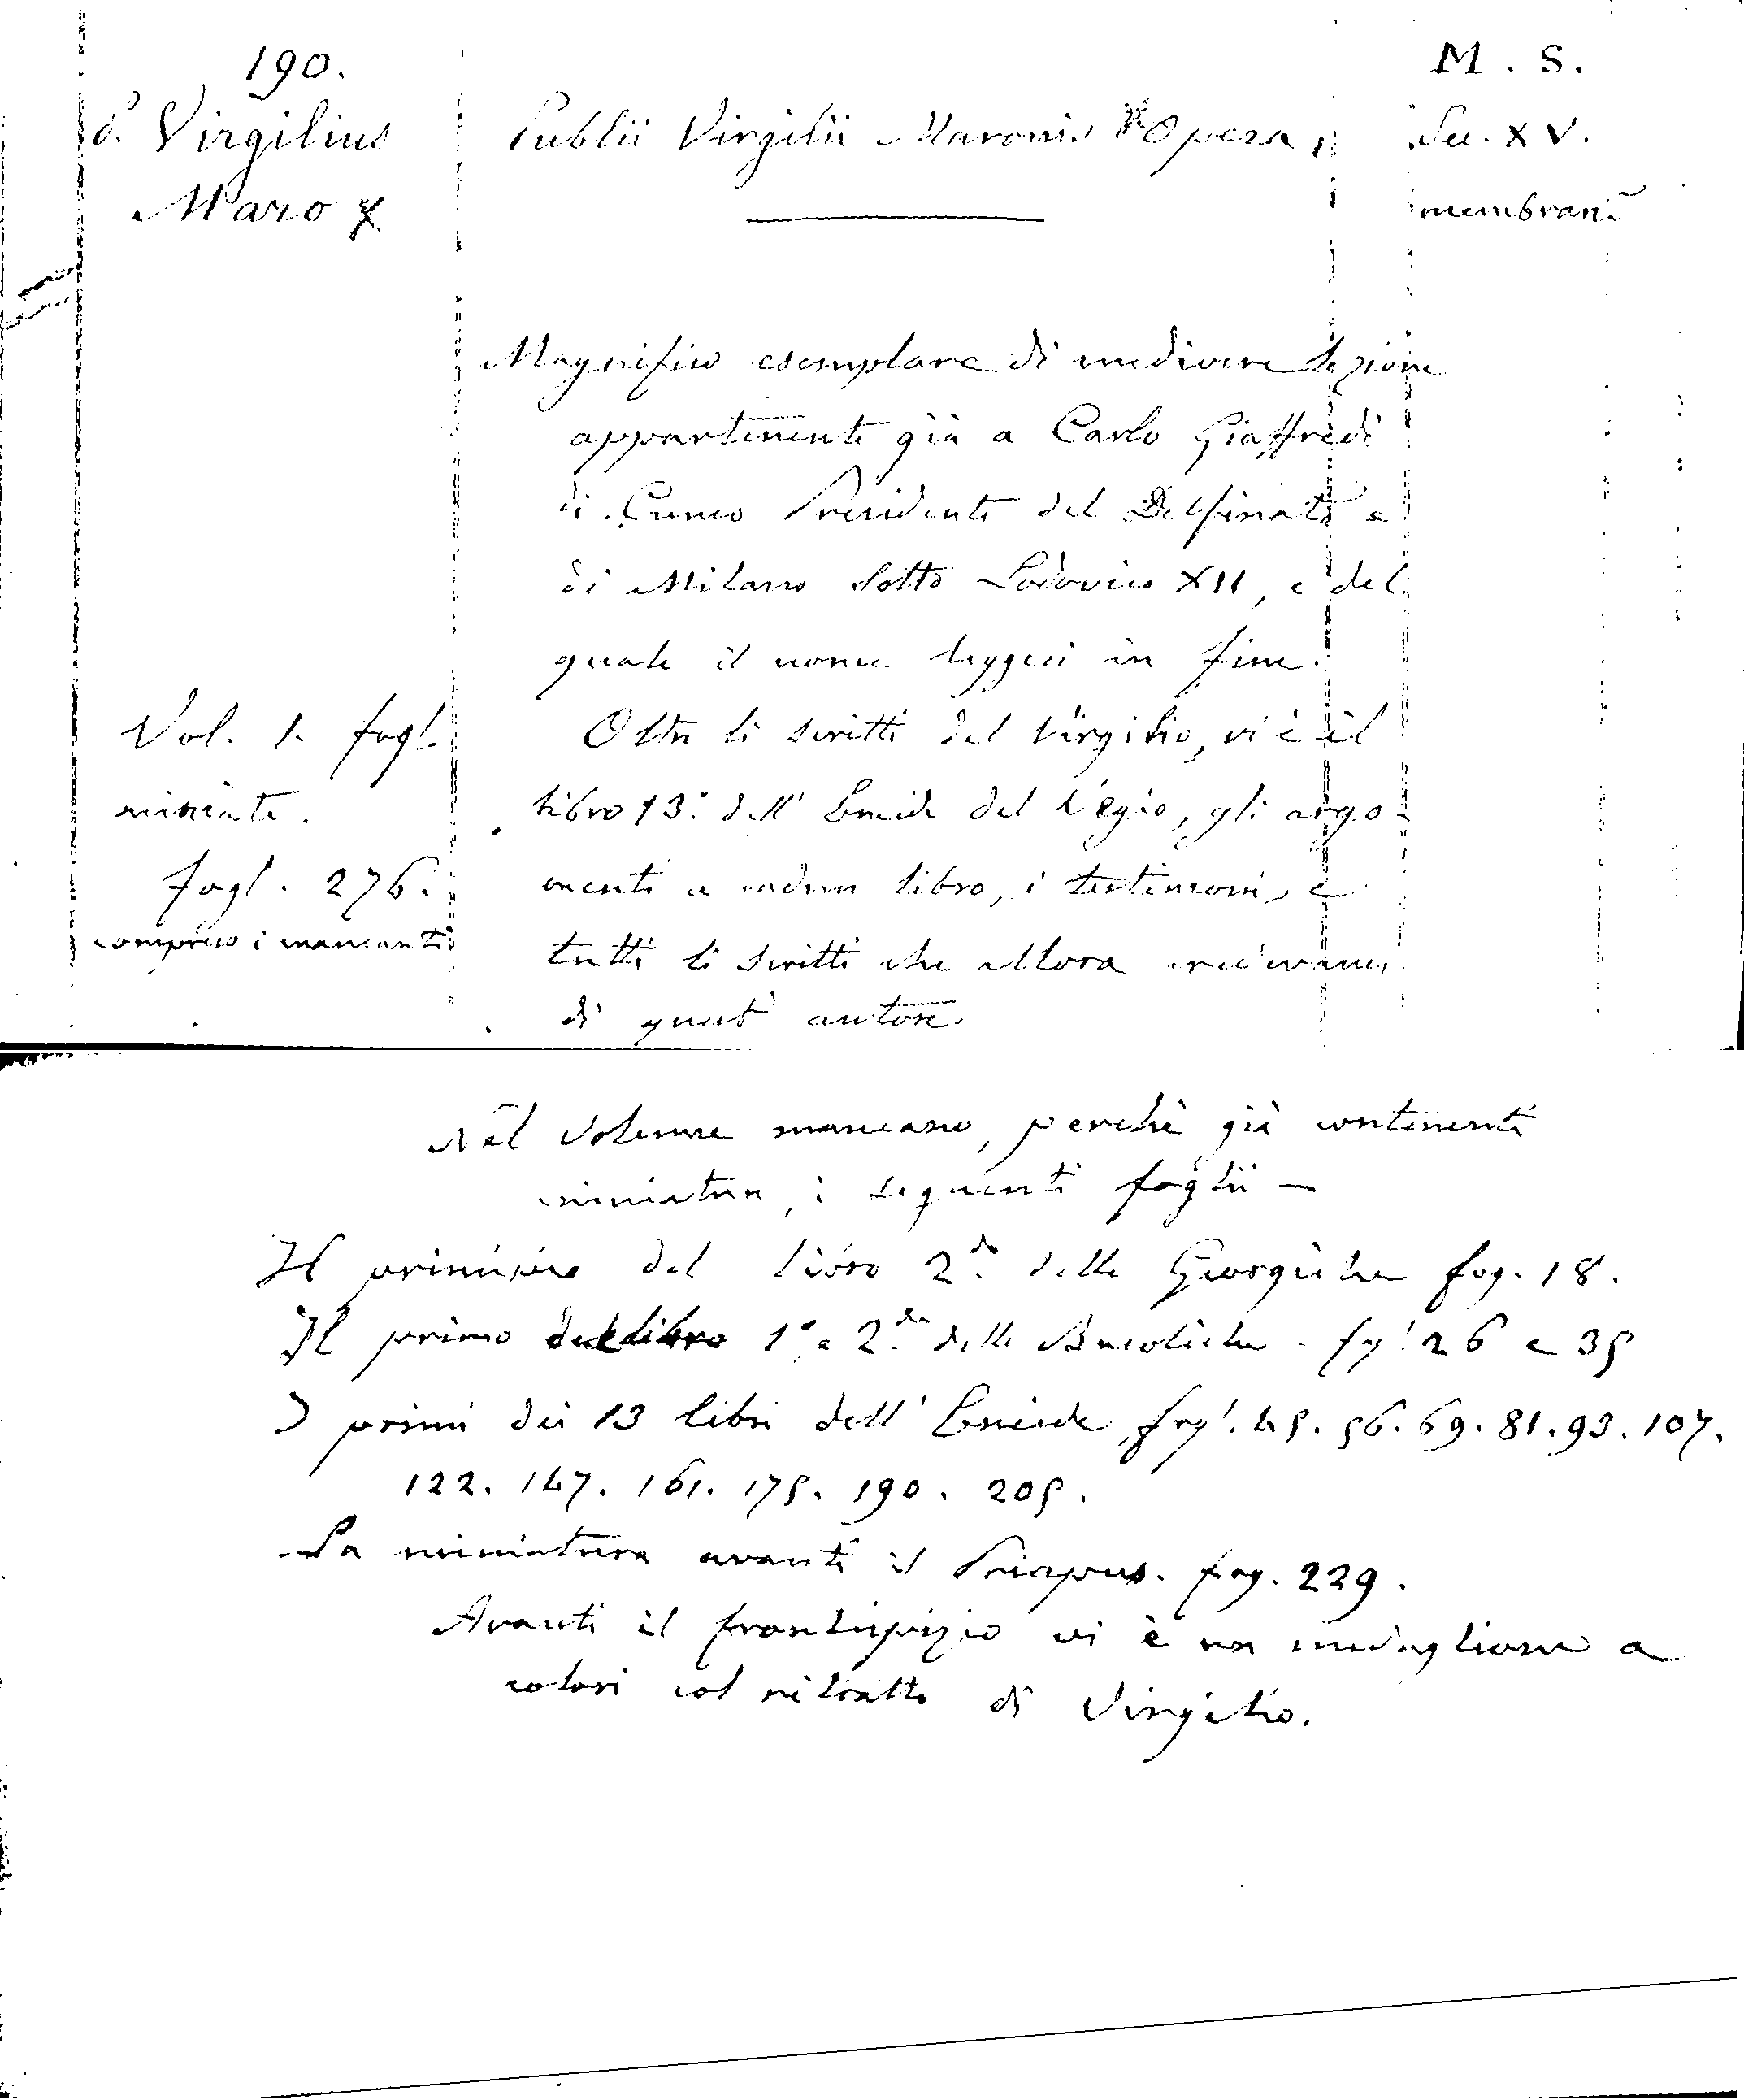 190.
M. S.
d. Virgilius
Publii Virgilii Maronis Opera
Sec. XV.
Maro
membran.
Magnifico esemplare di mediocre lezione
appartenente già a Carlo Giaffredi
di Cuneo Presidente del Delfinato e
di Milano sotto Lodovico XII, e del
quale il nome leggesi in fine.
Vol. 1. fogl.
miniate.
fogl. 276.
compreso i mancanti
Oltre li scritti del Virgilio, vi è il
libro 13.° dell' Eneide del Vegio, gli argo-
menti a cadun libro, i testimoni, e
tutti li scritti che allora credevansi
di quest' autore.
Nel volume mancano, perchè già contenenti
miniature, i seguenti foglii —
Il principio del libro 2.do delle Georgiche fog. 18.
Il primo del libro 1° e 2.da delle Bucoliche - fog! 26 e 35
I primi dei 13 libri dell' Eneide, fog!. 45. 56. 69. 81. 93. 107.
122. 147. 161. 175. 190. 205.
La miniatura avanti il Priapus. fog. 229.
Avanti il frontispizio vi è un medaglione a
colori col ritratto di Virgilio.